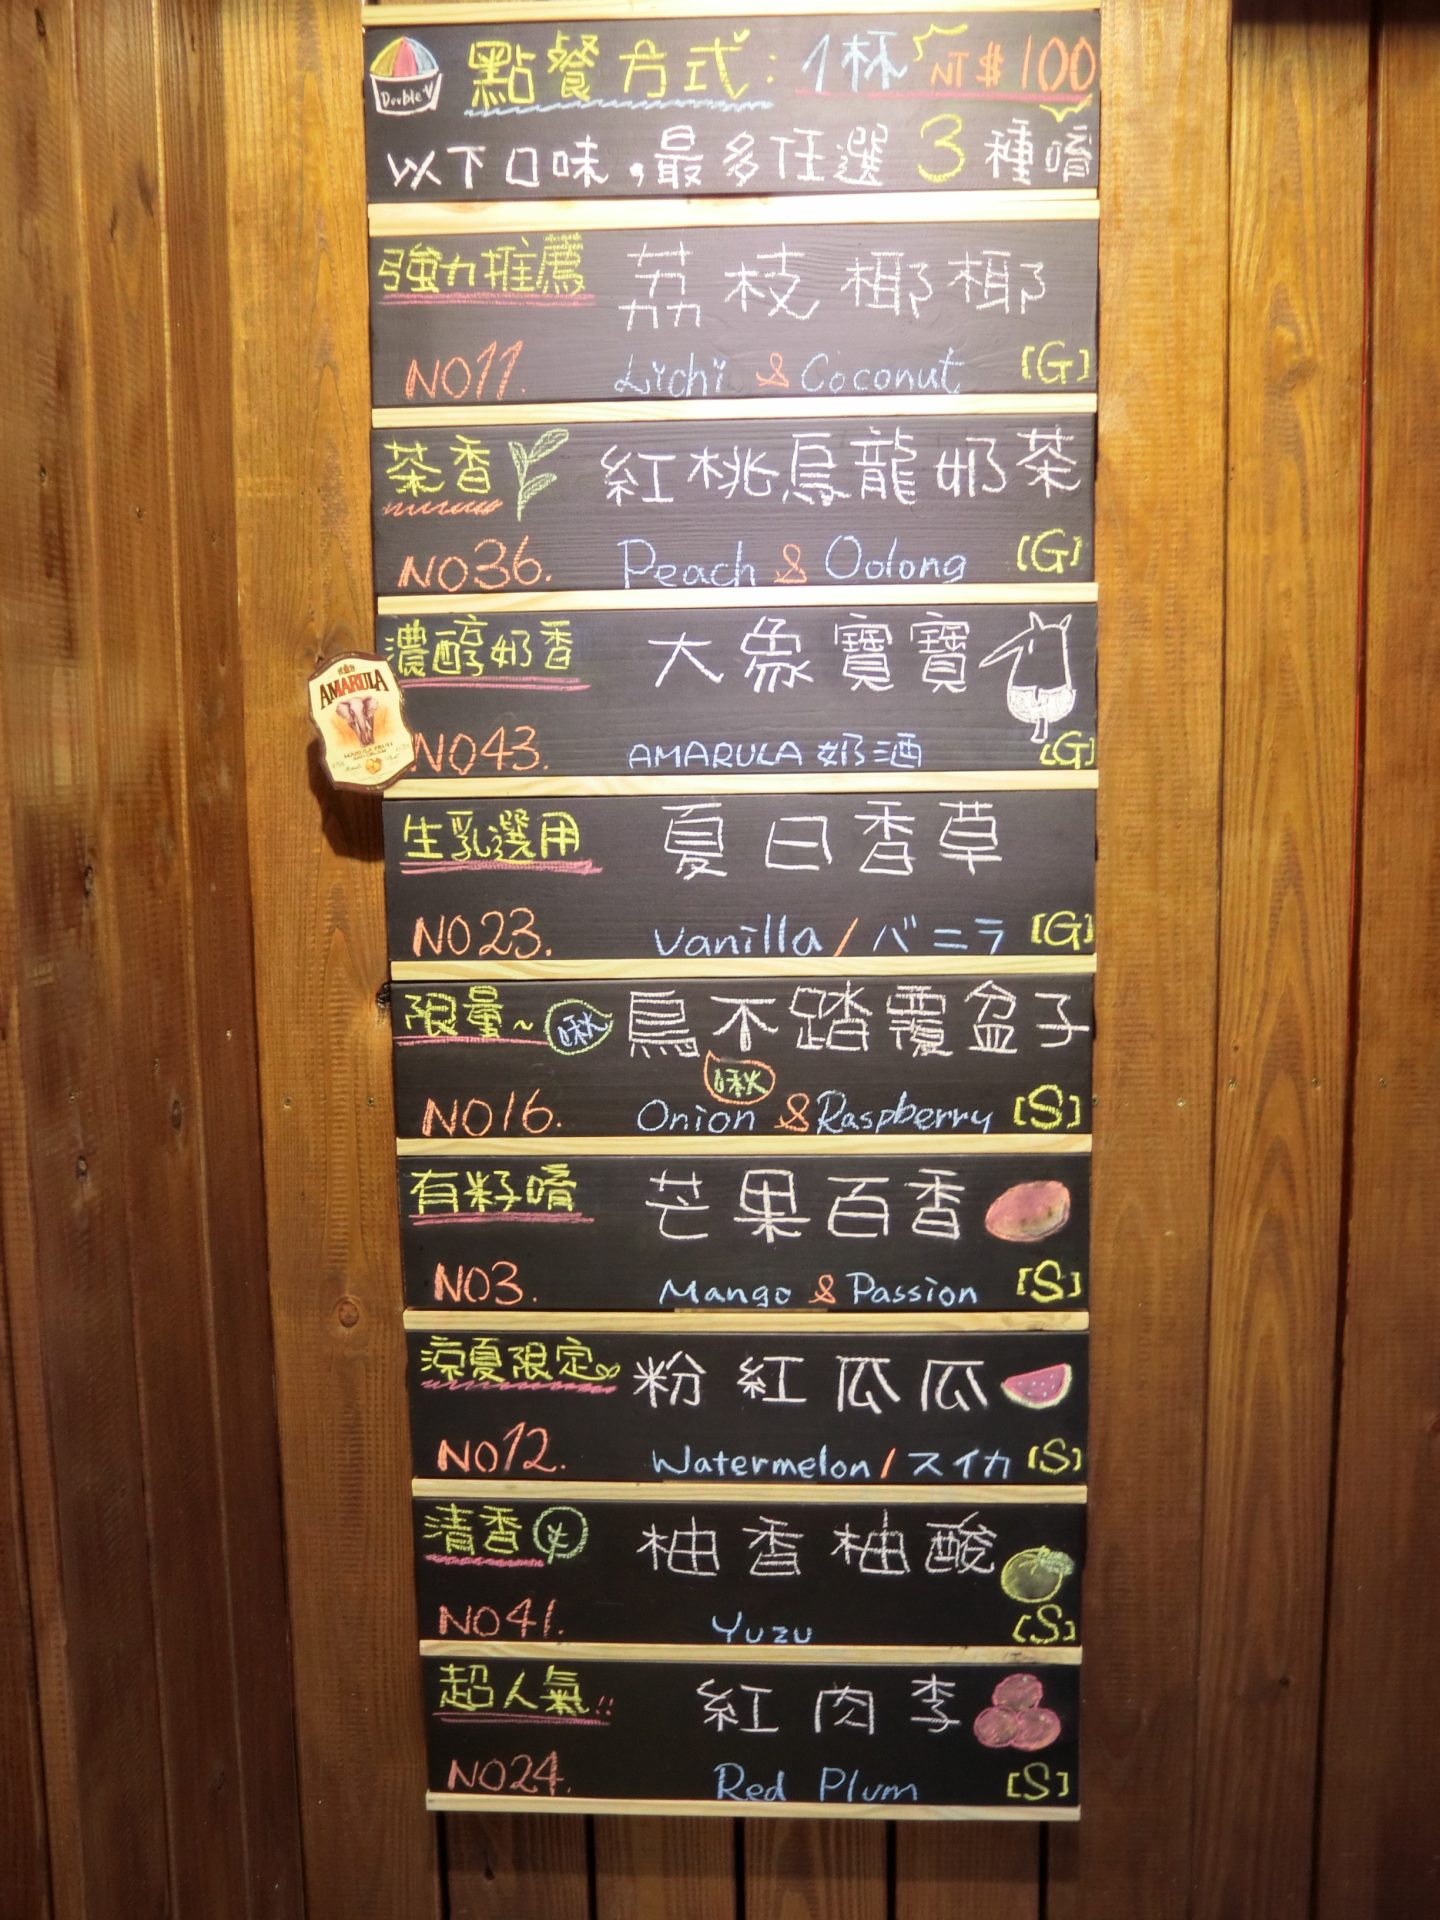 Double V
點餐方式：1杯 NT$100
以下口味，最多任選3種唷
強力推薦 荔枝椰椰
NO11. Lichi & Coconut [G]
茶香 紅桃烏龍奶茶
NO36. Peach & Oolong [G]
濃醇奶香 大象寶寶
AMARULA
NO43. AMARULA 奶酒 [G]
生乳選用 夏日香草
NO23. Vanilla / バニラ [G]
限量~ 啾 鳥不踏覆盆子
啾
NO16. Onion & Raspberry [S]
有籽唷 芒果百香
NO3. Mango & Passion [S]
涼夏限定 粉紅瓜瓜
NO12. Watermelon / スイカ [S]
清香 柚香柚酸
NO41. Yuzu [S]
超人氣!! 紅肉李
NO24. Red Plum [S]